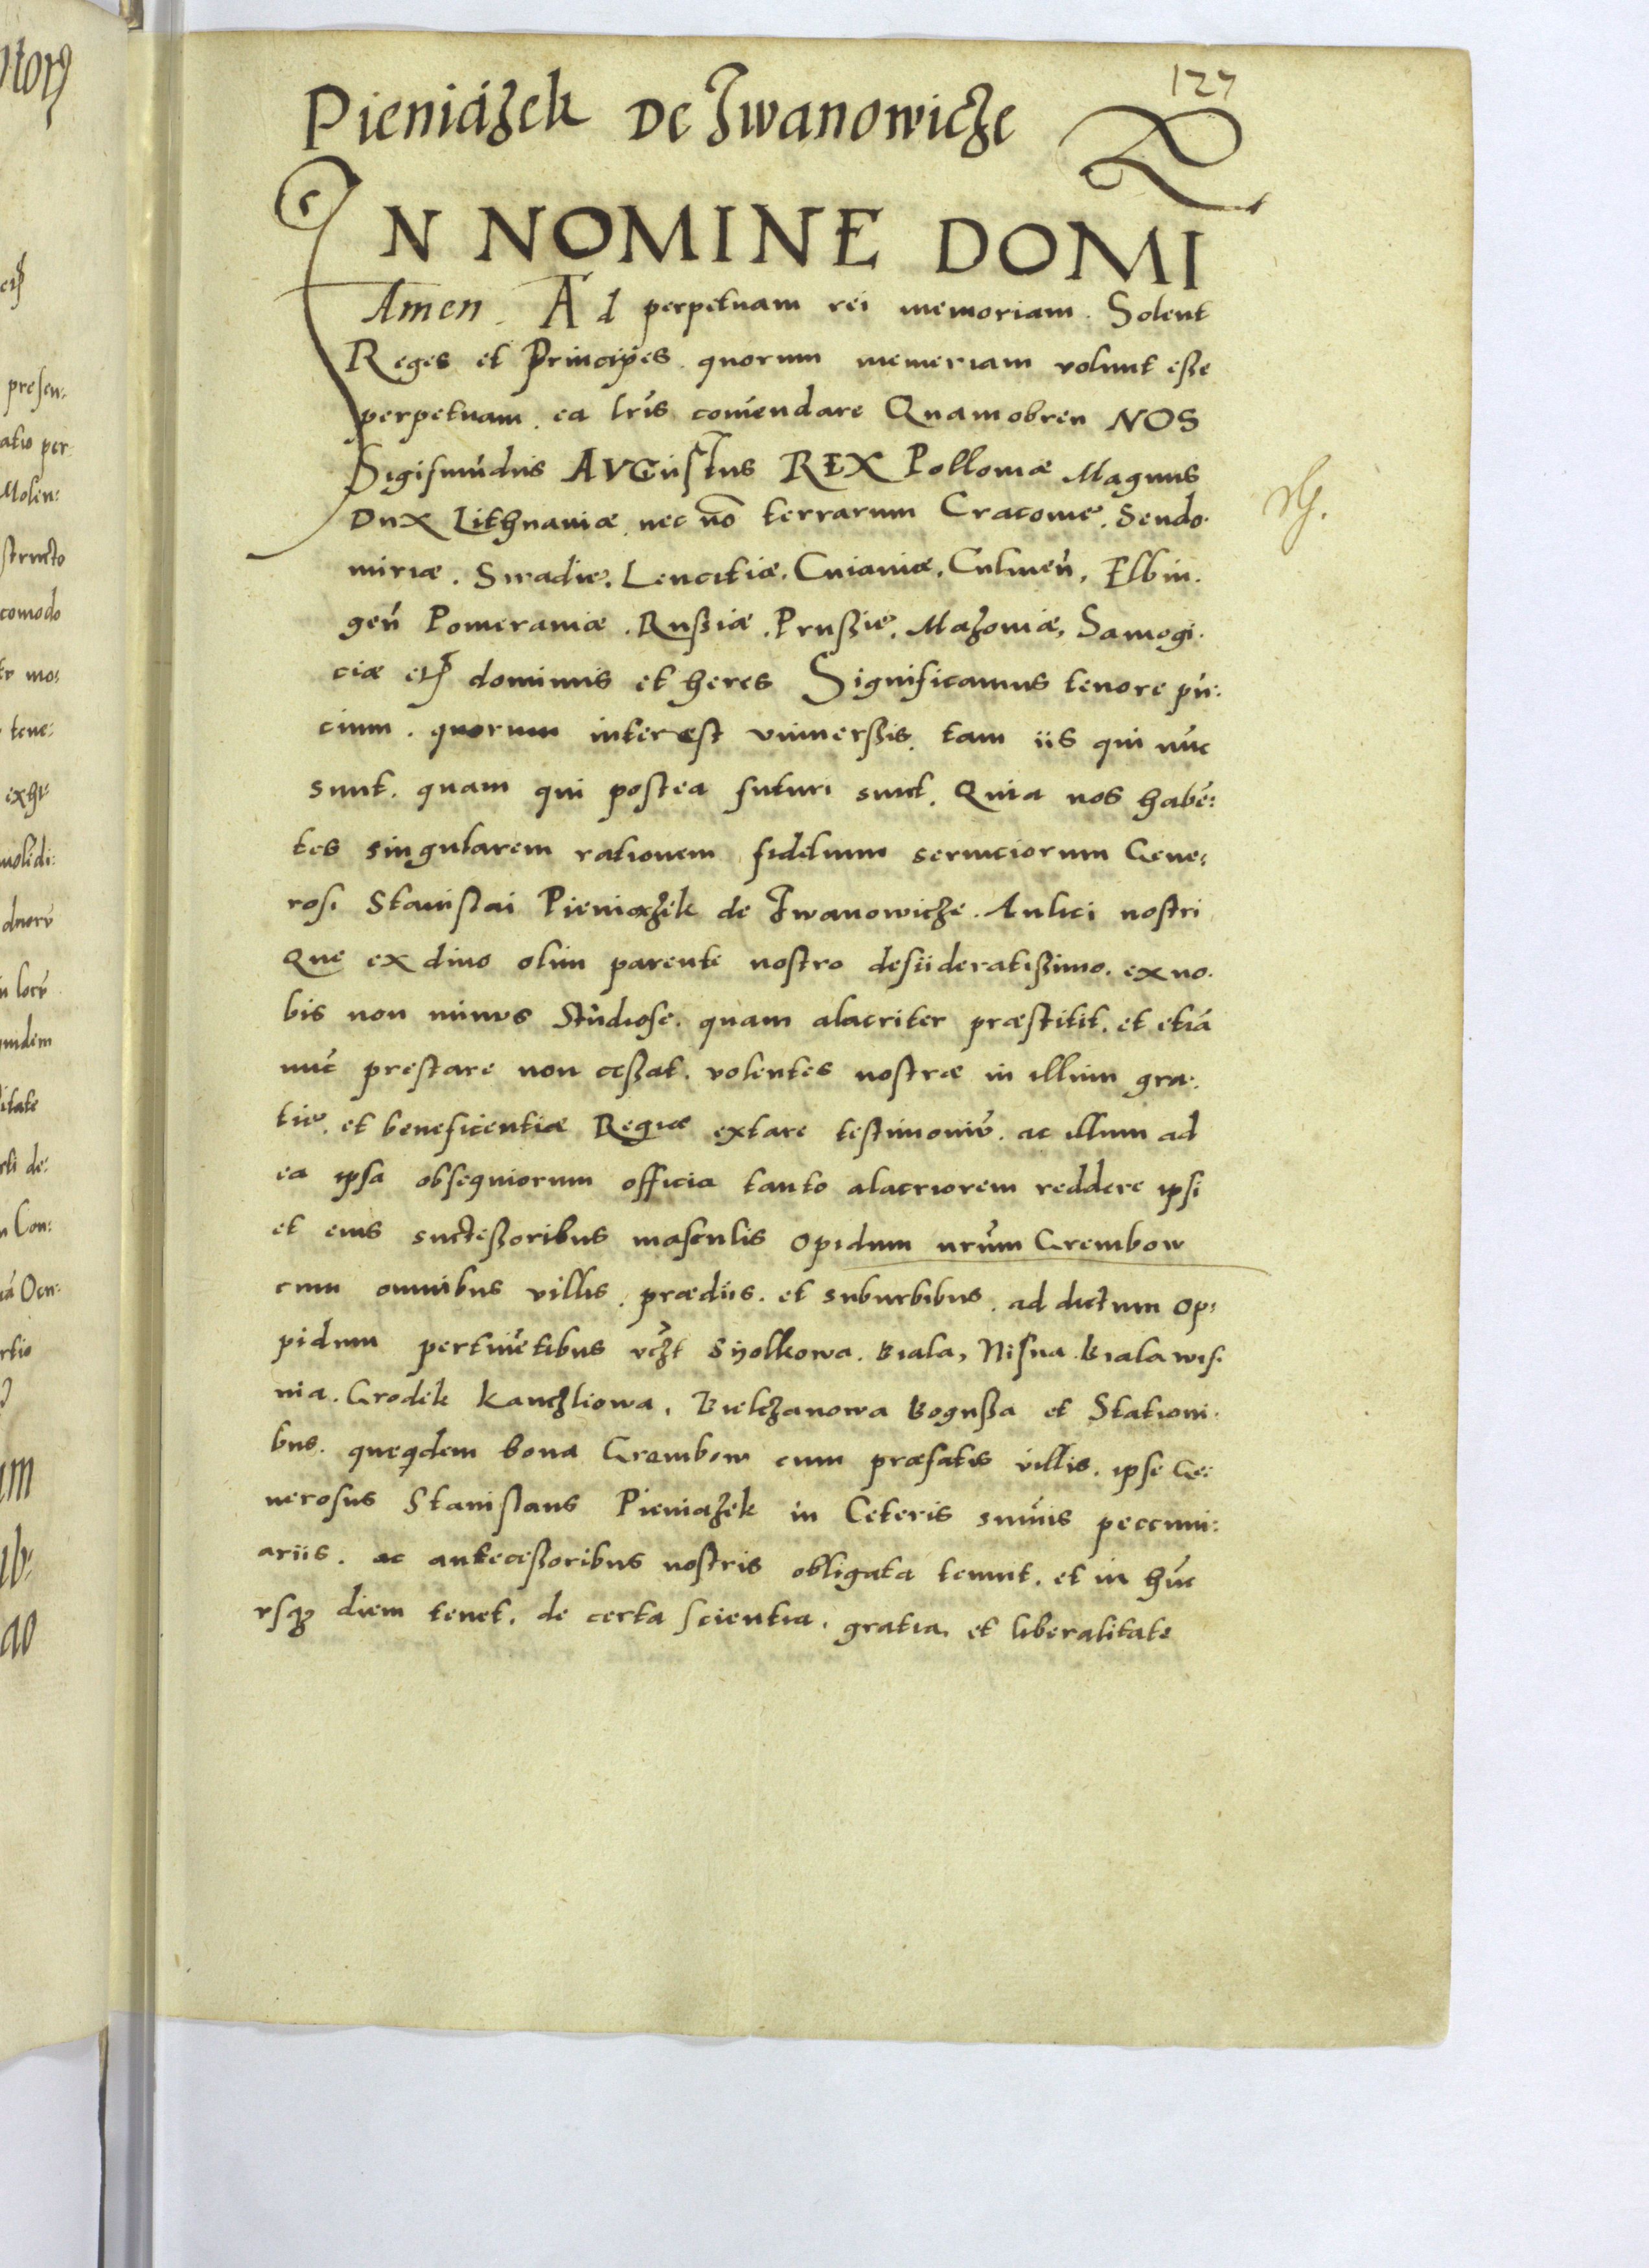 127
Pieniążek De Iwanowicze
IN NOMINE DOMI
Amen. Ad perpetuam rei memoriam. Solent
Reges et Principes. quorum memeriam volunt eße
perpetuam. ea lr̃is com̃endare Quamobren NOS
Sigismũdus AVGustus REX Polloniæ Magnus
Dux Lithuaniæ. nec nõ terrarum Cracoviæ. Sendo.
miriæ. Siradiæ. Lencitiæ. Cuiaviæ. Culmeñ, Elbin.
geñ Pomeraniæ. Rußiæ. Prußiæ. Mazoviæ, Samogi.
ciæ etc̃ dominus et heres Significamus tenore pñ:
cium. quorum interest vniverßis. tam iis qui nũc
sunt. quam qui postea futuri sunt. Quia nos habẽ:
tes singularem rationem fidelium serviciorum Gene:
rosi Stanislai Pieniązek de Iwanowicze. Aulici nostri
Que ex divo olim parente nostro desiideratißimo. ex no.
bis non minus Studiose. quam alacriter præstitit. et etiã
nũc prestare non ceßat. volentes nostræ in illum gra:
tiæ. et beneficentiæ Regiæ extare testimoniũ. ac illum ad
ea ipsa obsequiorum officia tanto alacriorem reddere ipsi
et eius succeßoribus masculis Opidum nr̃um Grembow
cum omnibus villis. prædiis. et suburbibus. ad dictum Op:
pidum pertinẽtibus vczt Syolkowa. Biala, Nisna. Biala wis.
nia. Grodek Kanczliowa, Bielczanowa Bogußa et Stationi.
bus. queqdem bona Grembow cum præfatis villis. ipse Ge:
nerosus Stanislaus Pieniazek in Ceteris sum̃is peccuni:
ariis. ac anteceßoribus nostris obligata tenuit. et in hũc
vsqz diem tenet. de certa scientia. gratia. et liberalitate